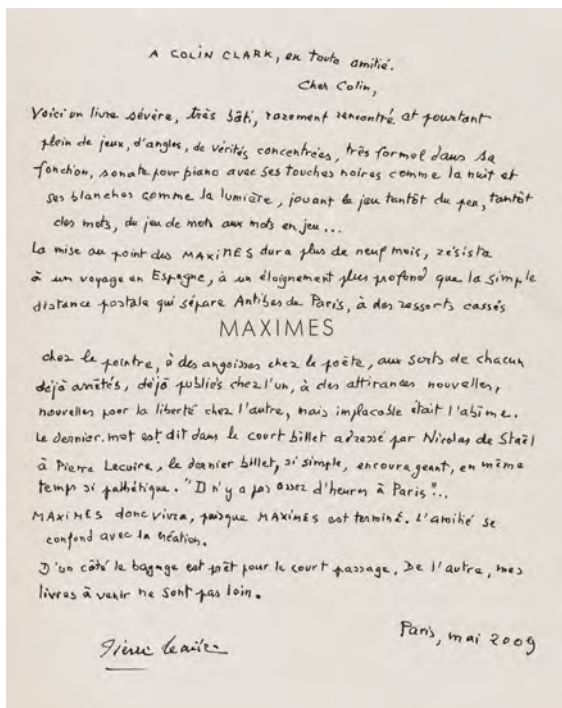 A COLIN CLARK, en toute amitié.
Cher Colin,
Voici un livre sévère, très bâti, rarement rencontré et pourtant
plein de jeux, d'angles, de vérités concentrées, très formel dans sa
fonction, sonate pour piano avec ses touches noires comme la nuit et
ses blanches comme la lumière, jouant le jeu tantôt du peu, tantôt
des mots, du jeu de mots aux mots en jeu...
La mise au point des MAXIMES dura plus de neuf mois, résista
à un voyage en Espagne, à un éloignement plus profond que la simple
distance postale qui sépare Antibes de Paris, à des ressorts cassés
MAXIMES
chez le peintre, à des angoisses chez le poète, aux sorts de chacun
déjà arrêtés, déjà publiés chez l'un, à des attirances nouvelles,
nouvelles pour la liberté chez l'autre, mais implacable était l'abîme.
Le dernier mot est dit dans le court billet adressé par Nicolas de Staël
à Pierre Lecuire, le dernier billet, si simple, encourageant, en même
temps si pathétique. "Il n'y a pas assez d'heures à Paris"...
MAXIMES donc vivra, puisque MAXIMES est terminé. L'amitié se
confond avec la création.
D'un côté le bagage est prêt pour le court passage. De l'autre, mes
livres à venir ne sont pas loin.
Paris, mai 2009
Pierre Lecuire